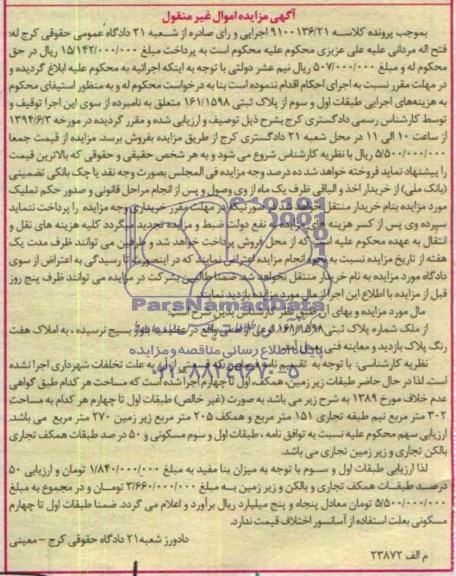 آگهی مزایده اموال غیر منقول
بموجب پرونده کلاسه ۹۱۰۰۱۳۶/۲۱ اجرایی و رای صادره از شعبه ۲۱ دادگاه عمومی حقوقی کرج له:
فتح اله مردانی علیه علی عزیزی محکوم علیه محکوم است به پرداخت مبلغ ۱۵/۱۴۲/۰۰۰/۰۰۰ ریال در حق
محکوم له و مبلغ ۵۰۷/۰۰۰/۰۰۰ ریال نیم عشر دولتی با توجه به اینکه اجرائیه به محکوم علیه ابلاغ گردیده و
در مهلت مقرر نسبت به اجرای احکام اقدام ننموده است بنا به درخواست محکوم له و به منظور استیفای محکوم
به هزینه‌های اجرایی طبقات اول و سوم از پلاک ثبتی ۱۶۱/۱۵۹۸ متعلق به نامبرده از سوی این اجرا توقیف و
توسط کارشناس رسمی دادگستری کرج بشرح ذیل توصیف و ارزیابی شده و مقرر گردیده در مورخه ۱۳۹۴/۶/۳
از ساعت ۱۰ الی ۱۱ در محل شعبه ۲۱ دادگستری کرج از طریق مزایده بفروش برسد. مزایده از قیمت جمعا
۵/۵۰۰/۰۰۰/۰۰۰ ریال با نظریه کارشناس شروع می شود و به هر شخص حقیقی و حقوقی که بالاترین قیمت
را پیشنهاد نماید فروخته خواهد شد ده درصد وجه مزایده فی المجلس بصورت وجه نقد یا چک بانکی تضمینی
(بانک ملی) از خریدار اخذ و الباقی ظرف یک ماه از وی وصول و پس از انجام مراحل قانونی و صدور حکم تملیک
مورد مزایده بنام خریدار منتقل خواهد شد در صورتیکه در مهلت مقرر خریداری وجه مزایده را پرداخت ننماید
سپرده وی پس از کسر هزینه های مزایده به نفع دولت ضبط و مزایده تجدید میگردد کلیه هزینه های نقل و
انتقال به عهده محکوم علیه است که از محل فروش پرداخت خواهد شد و طرفین می توانند ظرف مدت یک
هفته از تاریخ مزایده نسبت به نحوه انجام مزایده اعتراض نمایند که در اینصورت تا رسیدگی به اعتراض از سوی
دادگاه مورد مزایده به نام خریدار منتقل نخواهد شد ضمنا طالبین شرکت در مزایده می توانند ظرف پنج روز
قبل از مزایده با اطلاع این اجرا از مال مورد مزایده بازدید نمایند
مال مورد مزایده و بهای آن طبق نظر کارشناس بدین شرح است:
از ملک شماره پلاک ثبتی ۱۶۱/۱۵۹۸ فرعی از اصلی واقع در بلوار بسیج نرسیده، به املاک هفت
رنگ پلاک بازدید و معاینه فنی بعمل آمد
نظریه کارشناسی: با توجه به تقسیم نامه به علت تخلفات شهرداری اجرا نشده
است. لذا در حال حاضر طبقات زیر زمین، همکف، اول تا چهارم اجرا شده است که مساحت هر کدام طبق گواهی
عدم خلاف مورخ ۱۳۸۹ به شرح زیر می باشد به صورت (غیر خالص) طبقات اول تا چهارم هر کدام به مساحت
۳۰۲ متر مربع نیم طبقه تجاری ۱۵۱ متر مربع و همکف ۲۰۵ متر مربع زیر زمین ۲۷۰ متر مربع می باشد.
ارزیابی سهم محکوم علیه نسبت به توافق نامه، طبقات اول و سوم مسکونی و ۵۰ در صد طبقات همکف تجاری
بالکن تجاری و زیر زمین تجاری می باشد.
لذا ارزیابی طبقات اول و سوم با توجه به میزان بنا مفید به مبلغ ۱/۸۴۰/۰۰۰/۰۰۰ تومان و ارزیابی ۵۰
درصد طبقات همکف تجاری و بالکن و زیر زمین به مبلغ ۳/۶۶۰/۰۰۰/۰۰۰ تومان و در مجموع به مبلغ
۵/۵۰۰/۰۰۰/۰۰۰ تومان معادل پنجاه و پنج میلیارد ریال برآورد و اعلام می گردد. ضمنا طبقات اول تا چهارم
مسکونی بعلت استفاده از آسانسور اختلاف قیمت ندارد.
دادورز شعبه ۲۱ دادگاه حقوقی کرج - معینی
م الف ۲۳۸۷۲
ParsNamadData
پایگاه اطلاع رسانی مناقصه و مزایده
۰۲۱-۸۸۳۴۹۶۷۰-۵